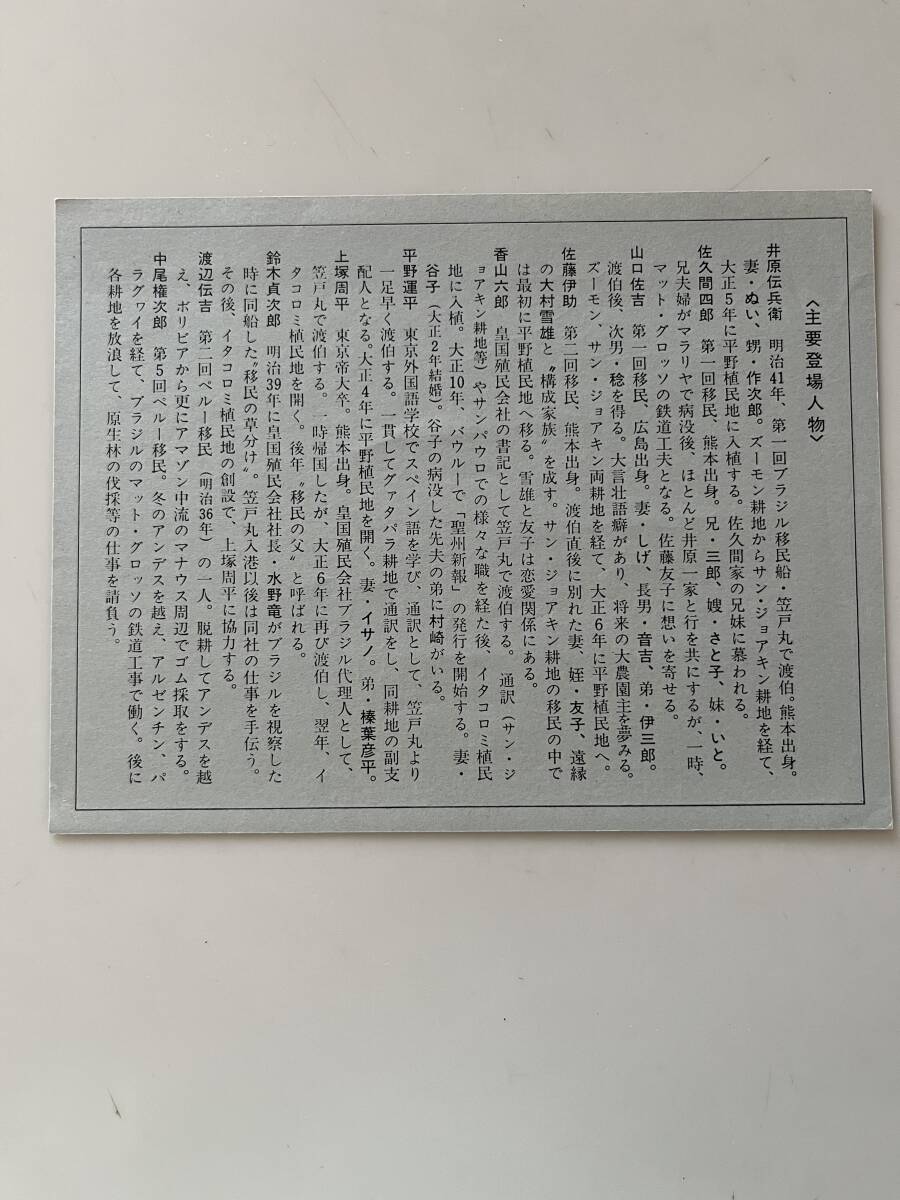 〈主要登場人物〉
井原伝兵衛　明治41年、第一回ブラジル移民船・笠戸丸で渡伯。熊本出身。
妻・ぬい、甥・作次郎。ズーモン耕地からサン・ジョアキン耕地を経て、
大正5年に平野植民地に入植する。佐久間家の兄妹に慕われる。
佐久間四郎　第一回移民、熊本出身。兄・三郎、嫂・さと子、妹・いと。
兄夫婦がマラリヤで病没後、ほとんど井原一家と行を共にするが、一時、
マット・グロッソの鉄道工夫となる。佐藤友子に想いを寄せる。
山口佐吉　第一回移民、広島出身。妻・しげ、長男・音吉、弟・伊三郎。
渡伯後、次男・稔を得る。大言壮語癖があり、将来の大農園主を夢みる。
ズーモン、サン・ジョアキン両耕地を経て、大正6年に平野植民地へ。
佐藤伊助　第二回移民、熊本出身。渡伯直後に別れた妻、姪・友子、遠縁
の大村雪雄と〝構成家族〟を成す。サン・ジョアキン耕地の移民の中で
は最初に平野植民地へ移る。雪雄と友子は恋愛関係にある。
香山六郎　皇国殖民会社の書記として笠戸丸で渡伯する。通訳（サン・ジ
ョアキン耕地等）やサンパウロでの様々な職を経た後、イタコロミ植民
地に入植。大正10年、バウルーで「聖州新報」の発行を開始する。妻・
谷子（大正2年結婚）。谷子の病没した先夫の弟に村崎がいる。
平野運平　東京外国語学校でスペイン語を学び、通訳として、笠戸丸より
一足早く渡伯する。一貫してグァタパラ耕地で通訳をし、同耕地の副支
配人となる。大正4年に平野植民地を開く。妻・イサノ。弟・榛葉彦平。
上塚周平　東京帝大卒。熊本出身。皇国殖民会社ブラジル代理人として、
笠戸丸で渡伯する。一時帰国したが、大正6年に再び渡伯し、翌年、イ
タコロミ植民地を開く。後年〝移民の父〟と呼ばれる。
鈴木貞次郎　明治39年に皇国殖民会社社長・水野竜がブラジルを視察した
時に同船した〝移民の草分け〟。笠戸丸入港以後は同社の仕事を手伝う。
その後、イタコロミ植民地の創設で、上塚周平に協力する。
渡辺伝吉　第二回ペルー移民（明治36年）の一人。脱耕してアンデスを越
え、ボリビアから更にアマゾン中流のマナウス周辺でゴム採取をする。
中尾権次郎　第5回ペルー移民。冬のアンデスを越え、アルゼンチン、パ
ラグワイを経て、ブラジルのマット・グロッソの鉄道工事で働く。後に
各耕地を放浪して、原生林の伐採等の仕事を請負う。